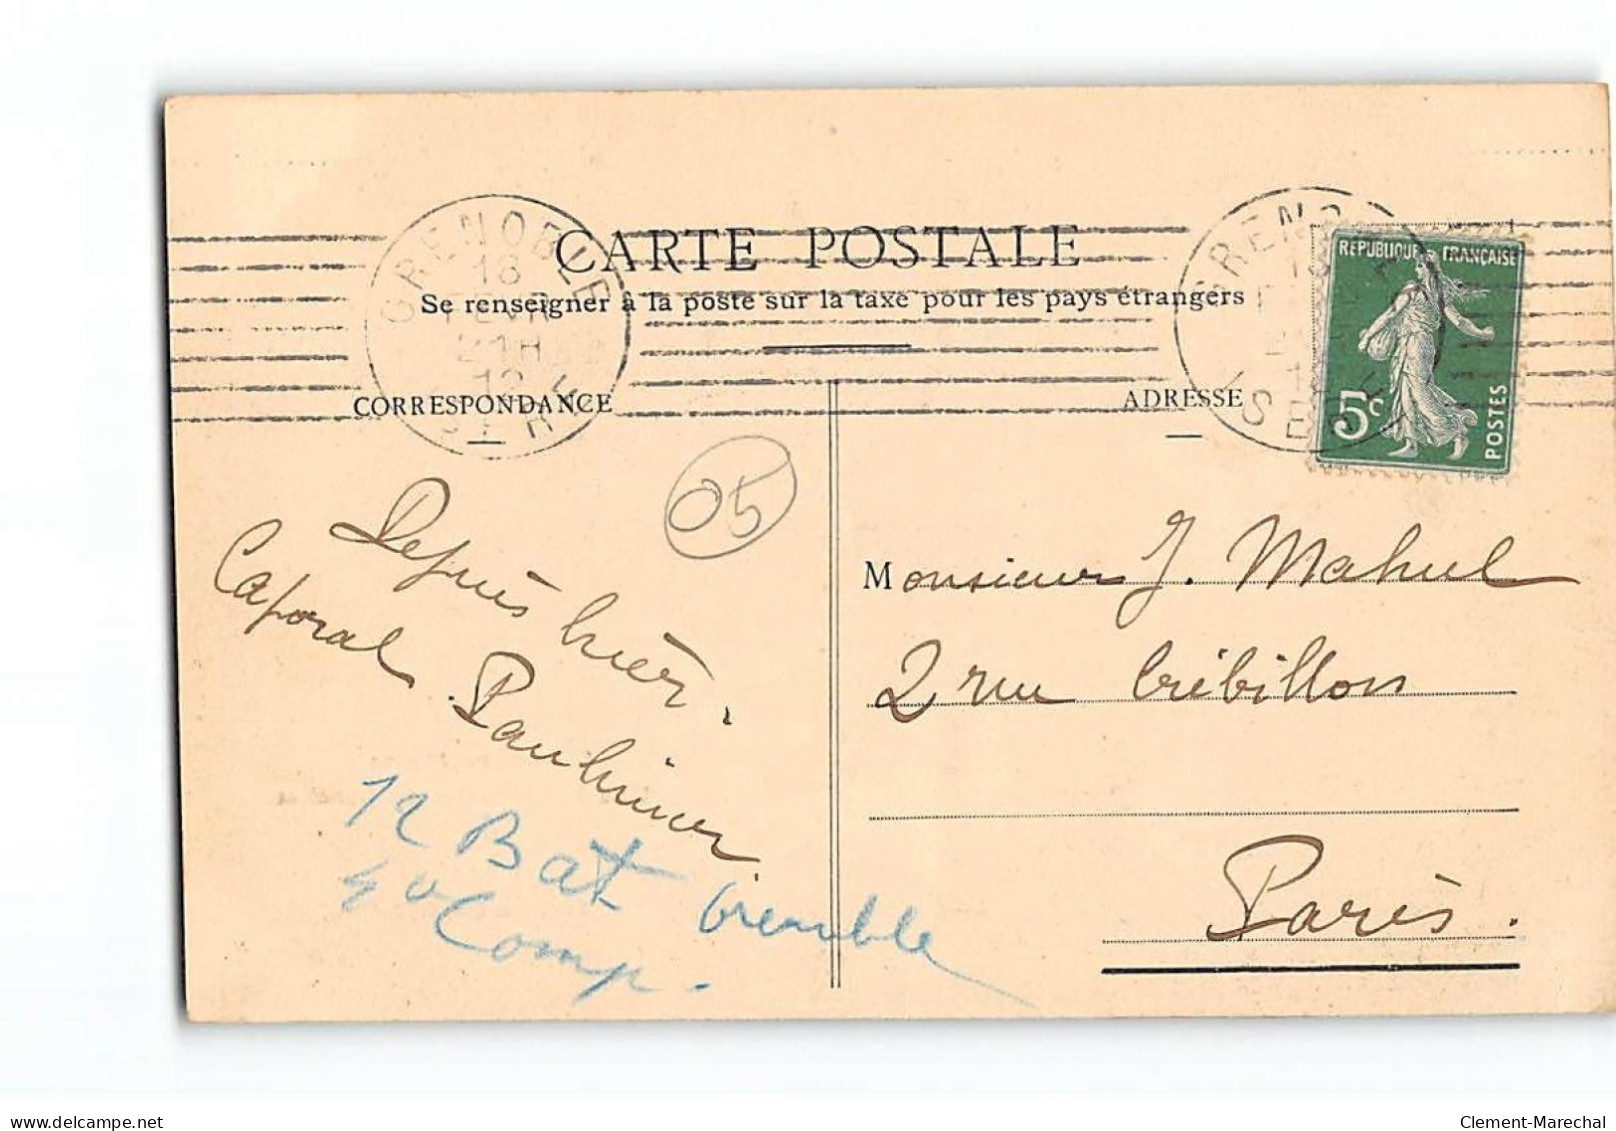 GRENOBLE
18
21H
12
ISERE
CARTE POSTALE
Se renseigner à la poste sur la taxe pour les pays étrangers
CORRESPONDANCE
ADRESSE
REPUBLIQUE FRANÇAISE
5c
POSTES
05
Depuis hier.
Caporal
12 Bat Grenoble
4e Comp.
Monsieur J. Mahul
2 rue Crébillon
Paris.
delcampe.net
Clement-Marechal